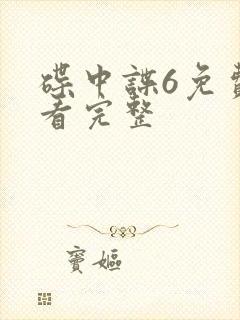 碟中諜6免費
看完整
竇嫗